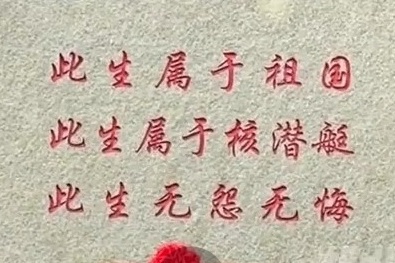 此生属于祖国
此生属于核潜艇
此生无怨无悔